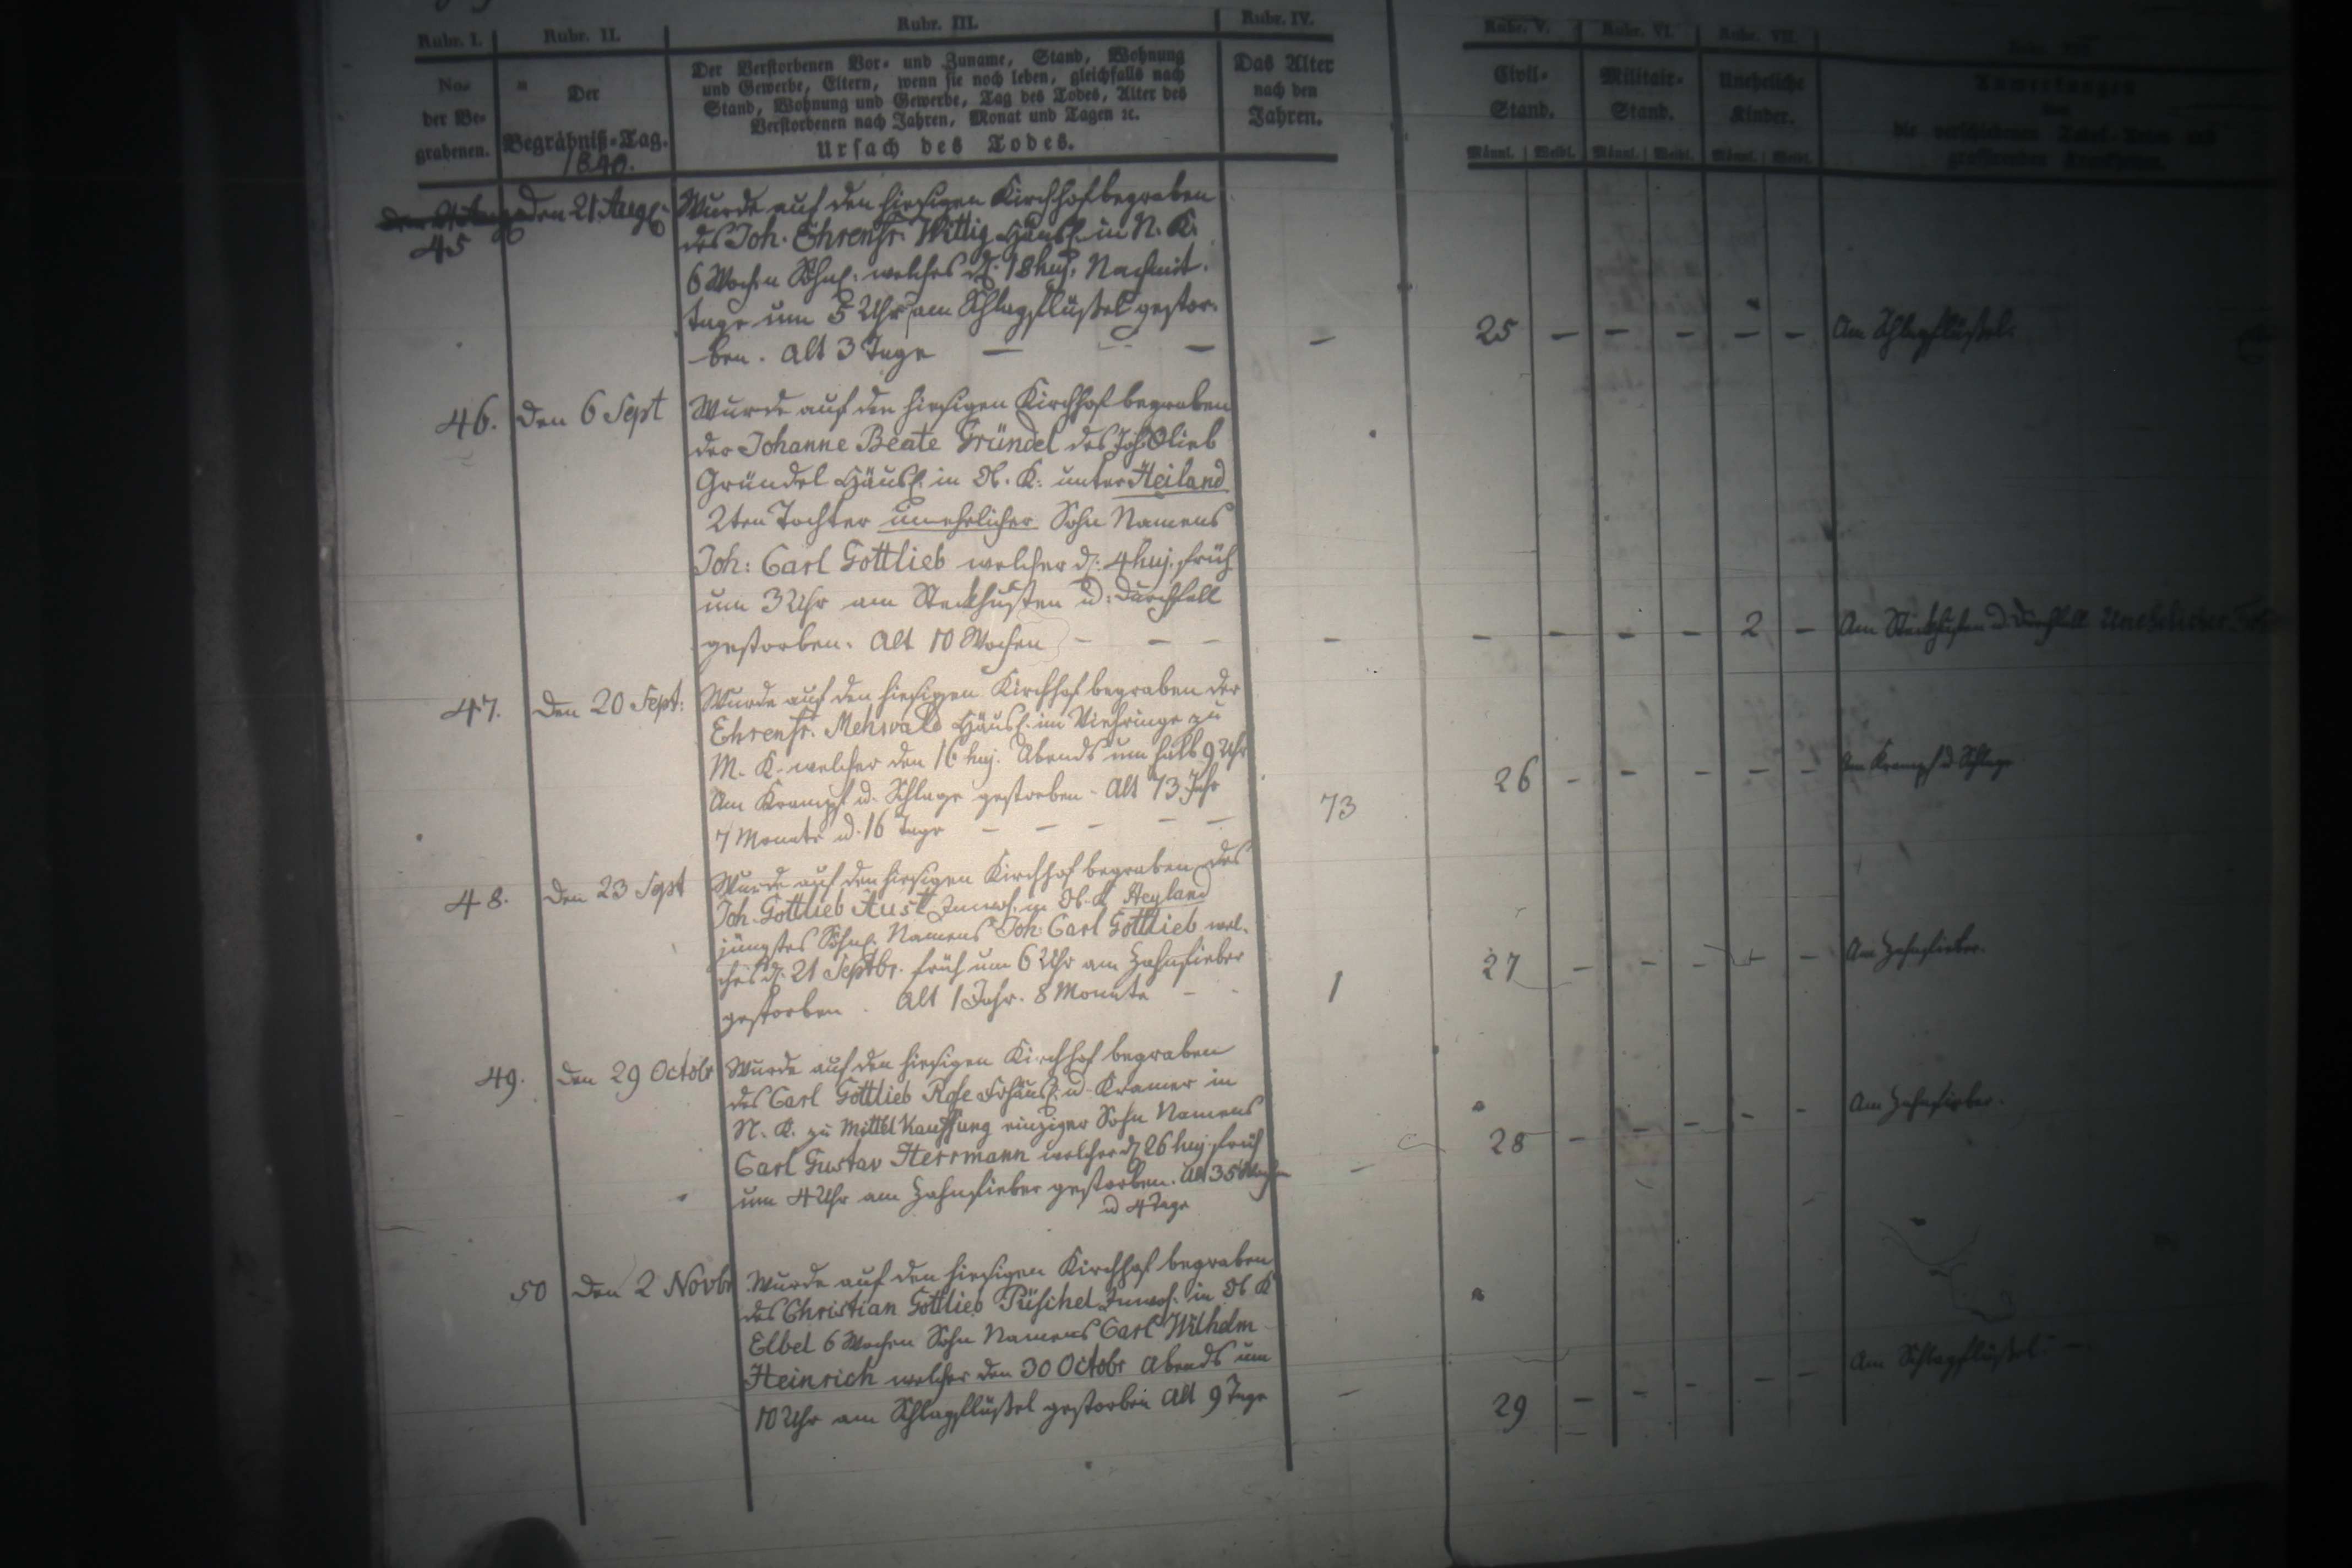 Rubr. I.
Rubr. II.
Rubr. III.
Rubr. IV.
Rubr. V.
Rubr. VI.
Rubr. VII.
No.
der Be=
grabenen.
Der
Begräbniß=Tag.
1840.
Der Verstorbenen Vor= und Zuname, Stand, Wohnung
und Gewerbe, Eltern, wenn sie noch leben, gleichfalls nach
Stand, Wohnung und Gewerbe, Tag des Todes, Alter des
Verstorbenen nach Jahren, Monat und Tagen ꝛc.
Ursach des Todes.
Das Alter
nach den
Jahren.
Civil=
Stand.
Militair=
Stand.
Uneheliche
Kinder.
Anmerkungen
über
die verschiedenen Todes=Arten und
grassirenden Krankheiten.
Männl. Weibl. Männl. Weibl. Männl. Weibl.
45
den 21 Aug:
Wurde auf den hiesigen Kirchhof begraben
des Joh. Ehrenfr. Wittig Häusl. in N. K.
6 Wochen Söhnl. welches d. 18 huj. Nachmit.
tags um 5 Uhr am Schlagflüßel gestor-
ben. Alt 3 Tage — — —
— 25 — — — — — Am Schlagflüßel.
46. Den 6 Sept
Wurde auf den hiesigen Kirchhof begraben
der Johanne Beate Gründel des Joh Glieb
Gründel Häusl. in Ob. K. unter Heiland
2ten Tochter unehelicher Sohn Namens
Joh: Carl Gottlieb welcher d. 4 huj. früh
um 3 Uhr am Steckhusten u: Durchfall
gestorben. Alt 10 Wochen — — —
— — — — — 2 — Am Steckhusten u. Durchfall Unehelicher
47. Den 20 Sept:
Wurde auf den hiesigen Kirchhof begraben der
Ehrenfr. Mehwald Häusl. im Viehringe zu
M. K. welcher den 16 huj. Abends um halb 9 Uhr
Am Krampf u. Schlage gestorben. Alt 73 Jahr
7 Monate u. 16 Tage — — — — —
73 26 — — — — — Am Krampf u. Schlage
48. Den 23 Sept
Wurde auf den hiesigen Kirchhof begraben des
Joh. Gottlieb Aust Inwoh. in Ob. K Heyland
jüngstes Söhnl. Namens Joh: Carl Gottlieb wel-
ches d. 21 Septbr. früh um 6 Uhr am Zahnfieber
gestorben. Alt 1 Jahr. 8 Monate — -
1 27 — — — — — Am Zahnfieber.
49. Den 29 Octobr
Wurde auf den hiesigen Kirchhof begraben
des Carl Gottlieb Rose Frhäusl. u. Kramer in
N. K. zu Mittel Kauffung einziger Sohn Namens
Carl Gustav Herrmann welcher d 26 huj. früh
um 4 Uhr am Zahnfieber gestorben. Alt 35 Wochen
u 4 Tage
— 28 — — — — — Am Zahnfieber.
50 Den 2 Novbr
Wurde auf den hiesigen Kirchhof begraben
des Christian Gottlieb Püschel Inwoh. in Ob K
Elbel 6 Wochen Sohn Namens Carl Wilhelm
Heinrich welcher den 30 Octobr Abends um
10 Uhr am Schlagflüßel gestorben Alt 9 Tage
— 29 — — — — — Am Schlagflüßel. —